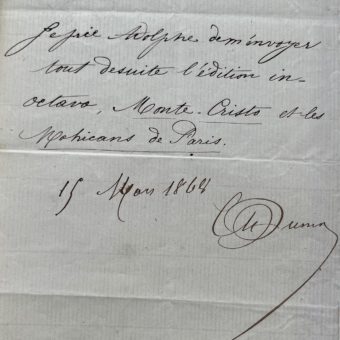 Je prie Adolphe de m'envoyer
tout desuite l'édition in-
octavo, Monte-Cristo et les
Mohicans de Paris.
15 Mars 1868
Dumas